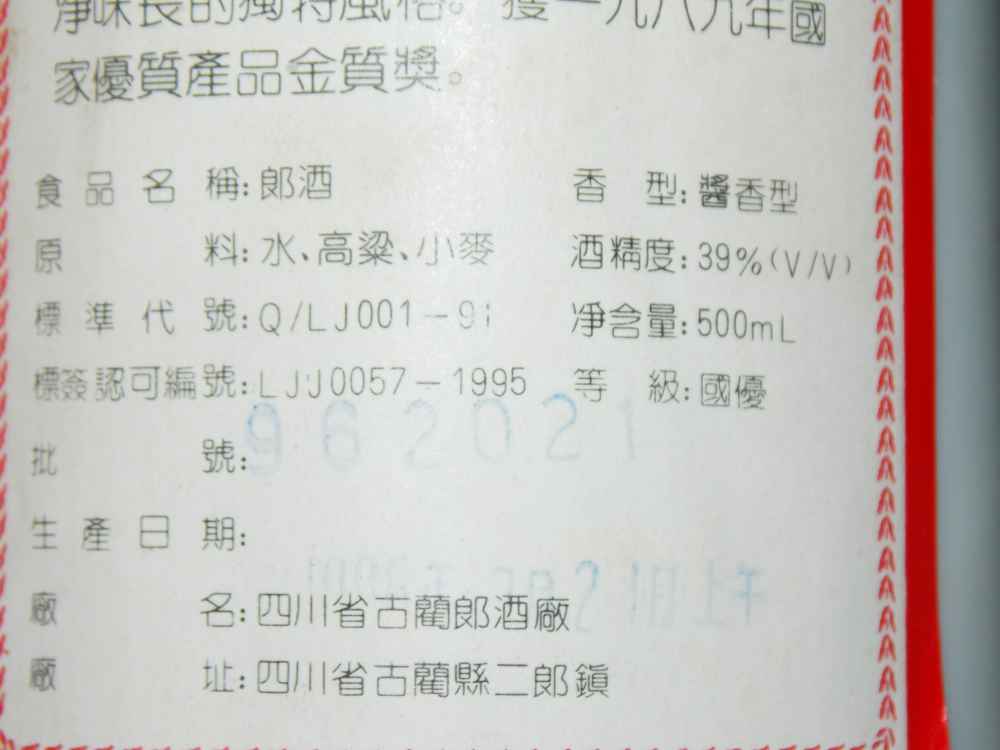 淨味長的獨特風格。獲一九八九年國
家優質產品金質獎。
食品名稱:郎酒 香型:醬香型
原料:水、高粱、小麥 酒精度:39%(V/V)
標準代號:Q/LJ001-91 淨含量:500mL
標簽認可編號:LJJ0057-1995 等級:國優
962021
批號:
生產日期:
21日上午
廠名:四川省古藺郎酒廠
廠址:四川省古藺縣二郎鎮